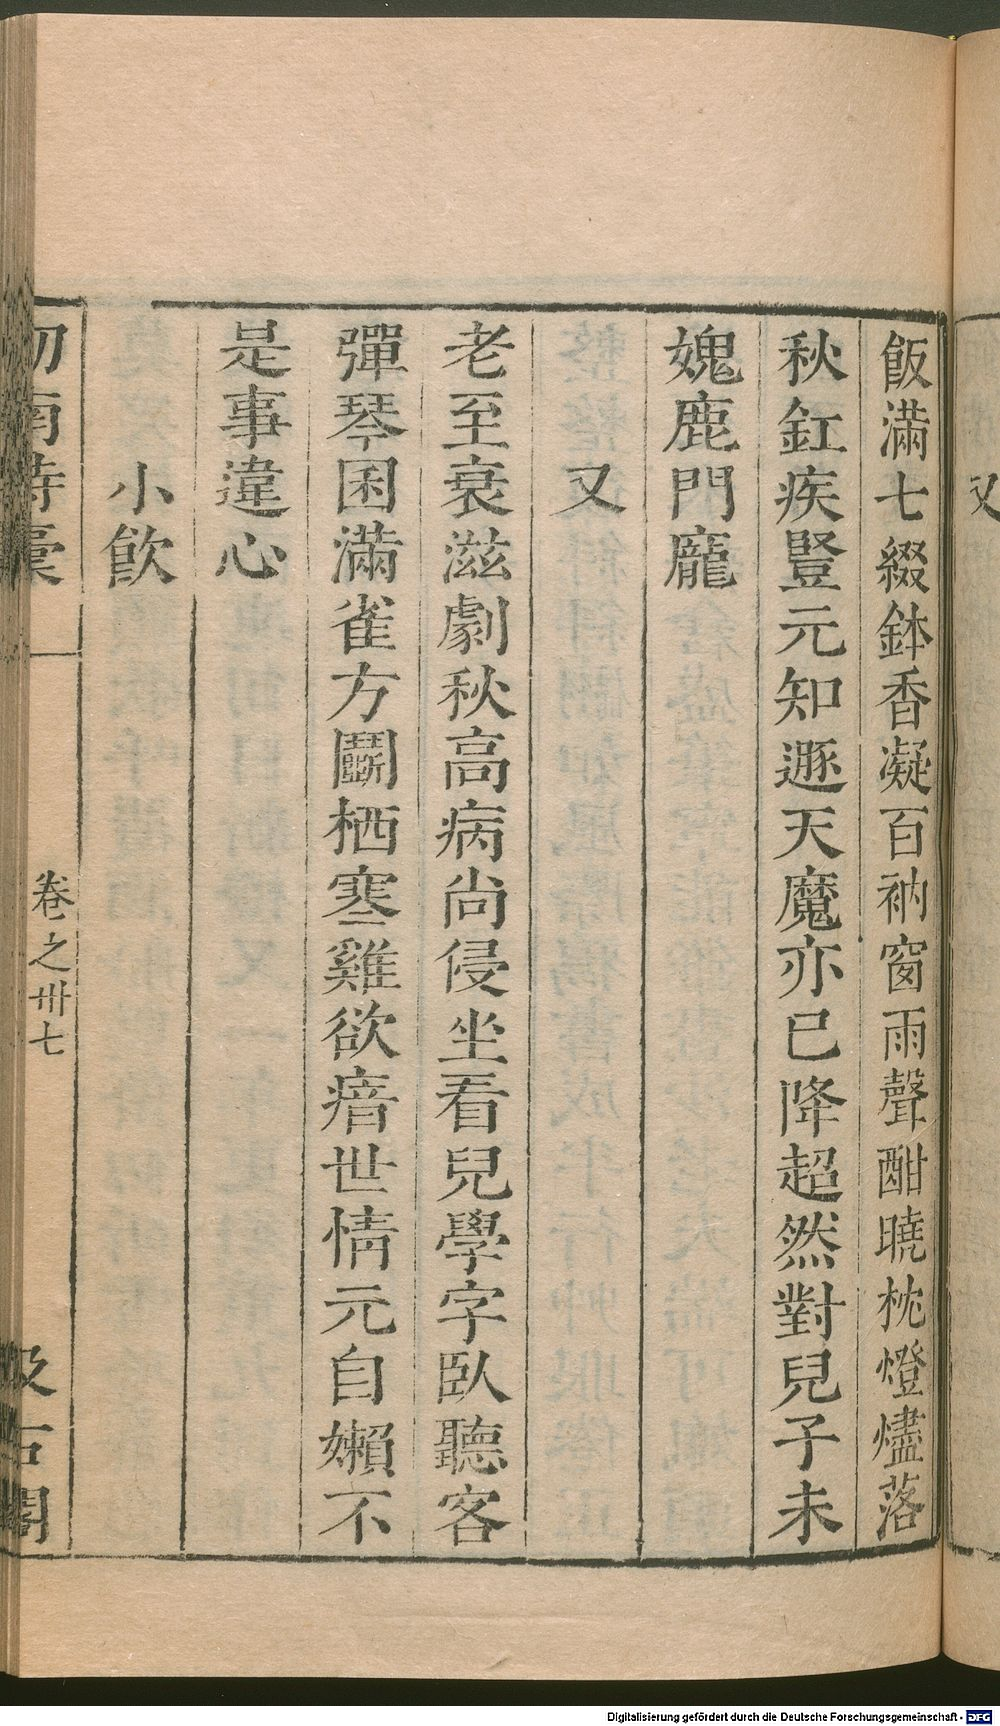 飯滿七綴鉢香凝百衲窗雨聲酣曉枕燈燼落
秋釭疾豎元知遯天魔亦已降超然對兒子未
媿鹿門龐
又
老至衰滋劇秋高病尚侵坐看兒學字臥聽客
彈琴囷滿雀方鬭栖寒雞欲瘖世情元自嬾不
是事違心
小飲
劒南詩稾
卷之卅七
汲古閣
又
Digitalisierung gefördert durch die Deutsche Forschungsgemeinschaft - DFG